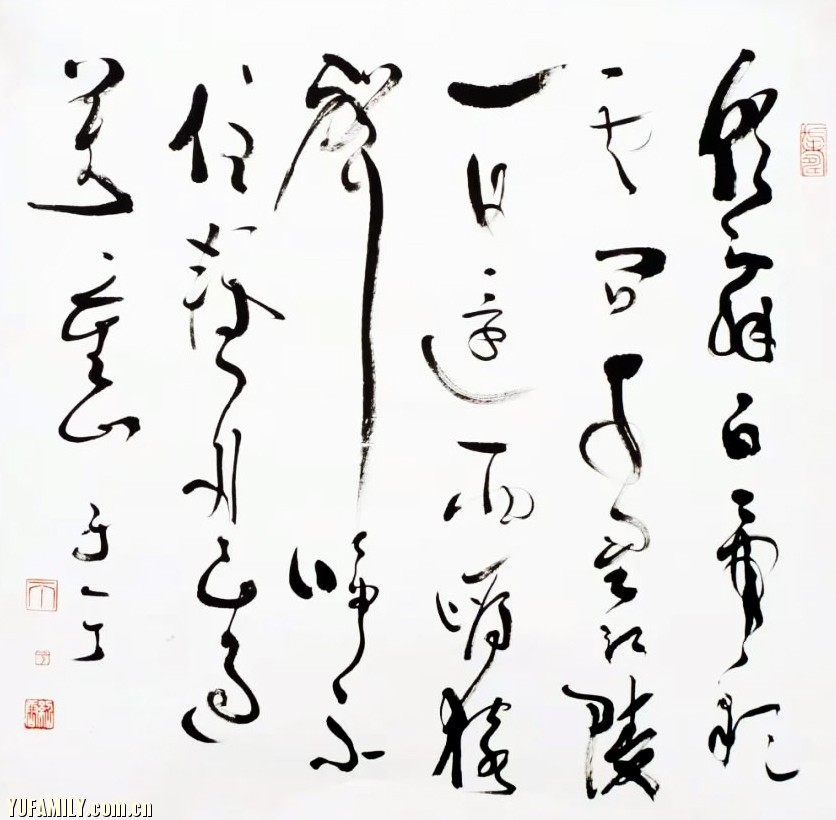 朝辭白帝彩
云間千里江陵
一日還兩岸猿
聲啼不
住輕舟已過
萬重山
YUFAMILY.com.cn